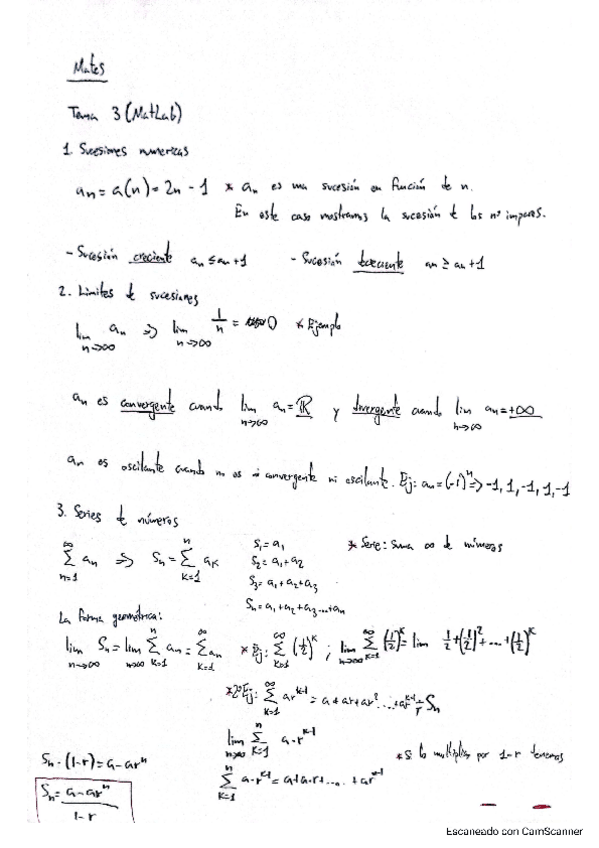 Mates
Tema 3 (MatLab)
1. Sucesiones numericas
an = a(n) = 2n - 1 * an es una sucesión en función de n.
En este caso mostramos la sucesión d los nº impares.
- Sucesión creciente an ≤ an+1 - Sucesión decreciente an ≥ an+1
2. Limites d sucesiones
lim n→∞ an ⇒ lim n→∞ 1/n = 0 * Ejemplo
an es convergente cuando lim n→∞ an = ℝ y divergente cuando lim n→∞ an = +∞
an es oscilante cuando no es ni convergente ni oscilante. Ej: an = (-1)^n ⇒ -1, 1, -1, 1, -1
3. Series d números
∞ Σ n=1 an ⇒ Sn = n Σ k=1 ak
S1 = a1
S2 = a1 + a2
S3 = a1 + a2 + a3
Sn = a1 + a2 + a3 ... + an
* Serie: Suma ∞ de números
La forma geométrica:
lim n→∞ Sn = lim n→∞ n Σ k=1 an = ∞ Σ k=1 an * Ej: ∞ Σ k=1 (1/2)^k ; lim n→∞ ∞ Σ k=1 (1/2)^k = lim 1/2 + (1/2)^2 + ... + (1/2)^k
*2º Ej: ∞ Σ k=1 ar^k-1 = a + ar + ar^2 ... + ar^k-1 Sn
lim n→∞ n Σ k=1 a·r^k-1
n Σ k=1 a·r^k-1 = a + a·r + .... + ar^n-1
* Si lo multiplico por 1-r tenemos
Sn · (1-r) = a - ar^n
Sn = a - ar^n / 1-r
Escaneado con CamScanner